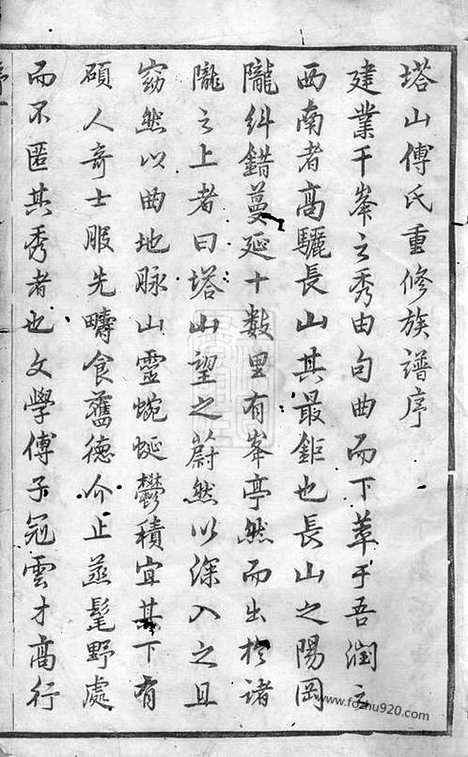 塔山傅氏重修族譜序
建業千峯之秀由句曲而下萃于吾潤之
西南者高驪長山其最鉅也長山之陽岡
隴糾錯蔓延十數里有峯亭然而出於諸
隴之上者曰塔山望之蔚然以深入之且
窈然以曲地脉山靈蜿蜒鬱積宜其下有
碩人奇士服先疇食舊德介止烝髦野處
而不匿其秀者也文學傅子冠雲才高行
www.fozhu920.com